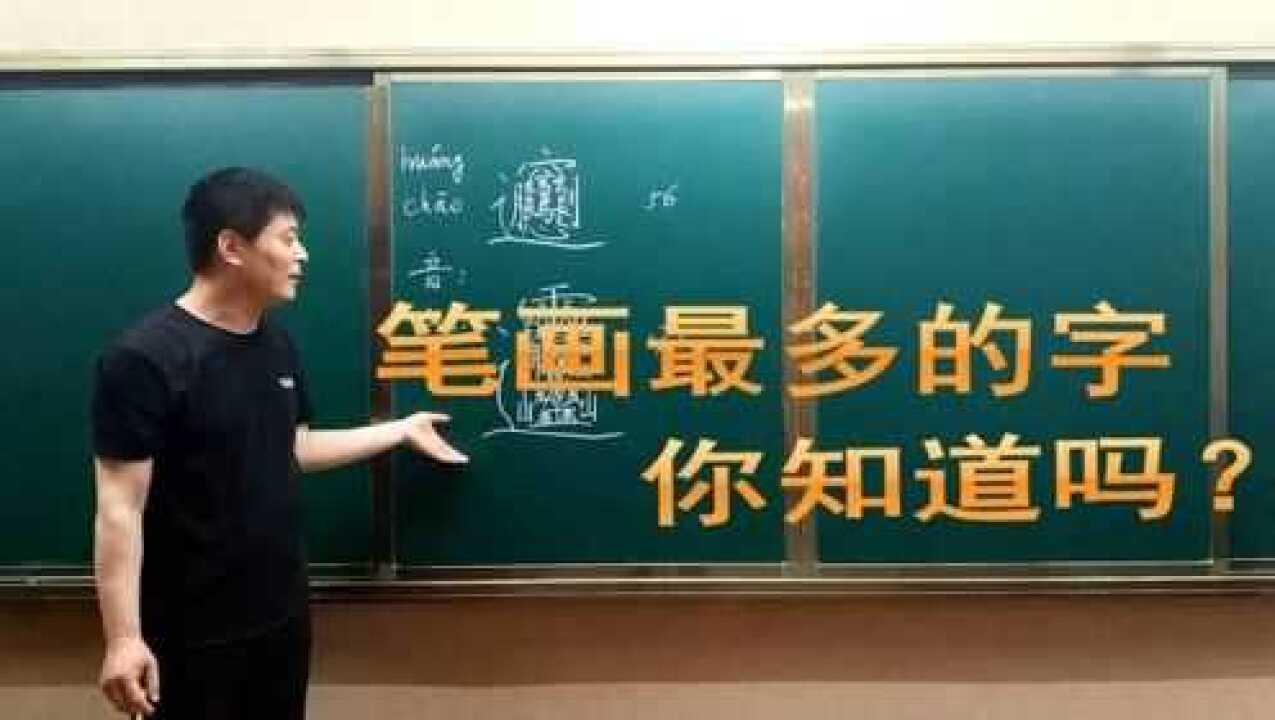 huáng
56
音：
笔画最多的字
你知道吗？